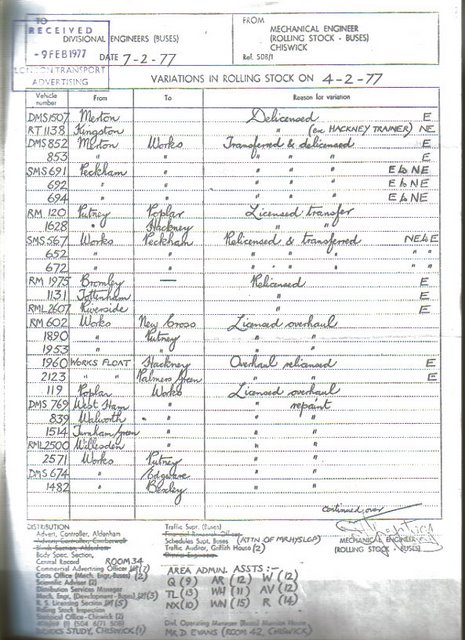 TO
RECEIVED
DIVISIONAL ENGINEERS (BUSES)
- 9 FEB 1977
DATE 7-2-77
LONDON TRANSPORT
ADVERTISING
FROM
MECHANICAL ENGINEER
(ROLLING STOCK - BUSES)
CHISWICK
Ref. SDB/1
VARIATIONS IN ROLLING STOCK ON 4-2-77
Vehicle number From To Reason for variation
DMS1507 Merton Delicensed E
RT1138 Kingston " (ex HACKNEY TRAINER) NE
DMS852 Merton Works Transferred & delicensed E
853 " " " " " E
SMS691 Peckham " " " " E to NE
692 " " " " " E to NE
694 " " " " " E to NE
RM 120 Putney Poplar Licensed transfer
1628 " Hackney " "
SMS567 Works Peckham Relicensed & transferred NE to E
652 " " " " " " "
672 " " " " " " "
RM 1975 Bromley — Relicensed E
1131 Tottenham " E
RML2607 Riverside " E
RM 602 Works New Cross Licensed overhaul
1890 " Putney " "
1953 " " " "
1960 WORKS FLOAT Hackney Overhaul relicensed E
2123 " " Palmers Green " " E
119 Poplar Works Licensed overhaul
DMS 769 West Ham " " repaint
839 Walworth " " "
1514 Turnham Green " " "
RML2500 Willesden " " "
2571 Works Putney " "
DMS 674 " Edgware " "
1482 " Bexley " "
continued over
MECHANICAL ENGINEER
(ROLLING STOCK - BUSES)
DISTRIBUTION
Advert. Controller, Aldenham
Body Spec. Section,
Central Record ROOM 34
Commercial Advertising Officer
Costs Office (Mech. Engr.-Buses) (2)
Scientific Adviser (2)
Distribution Services Manager
Mech. Engr. (Development - Buses) (5)
R. S. Licensing Section (5)
Rolling Stock Inspection
Technical Office - Chiswick (2)
WORKS STUDY, CHISWICK (1)
Traffic Supt. (Buses)
Schedules Supt. (Buses) (ATTN OF MR HYSLOP)
Traffic Auditor, Griffith House (2)
AREA ADMIN. ASSTS:-
Q (9) AR (12) W (12)
TL (13) WH (11) AV (12)
NX (10) WN (15) R (14)
Divl. Operating Manager
MR D. EVANS (ROOM 42, CHISWICK)